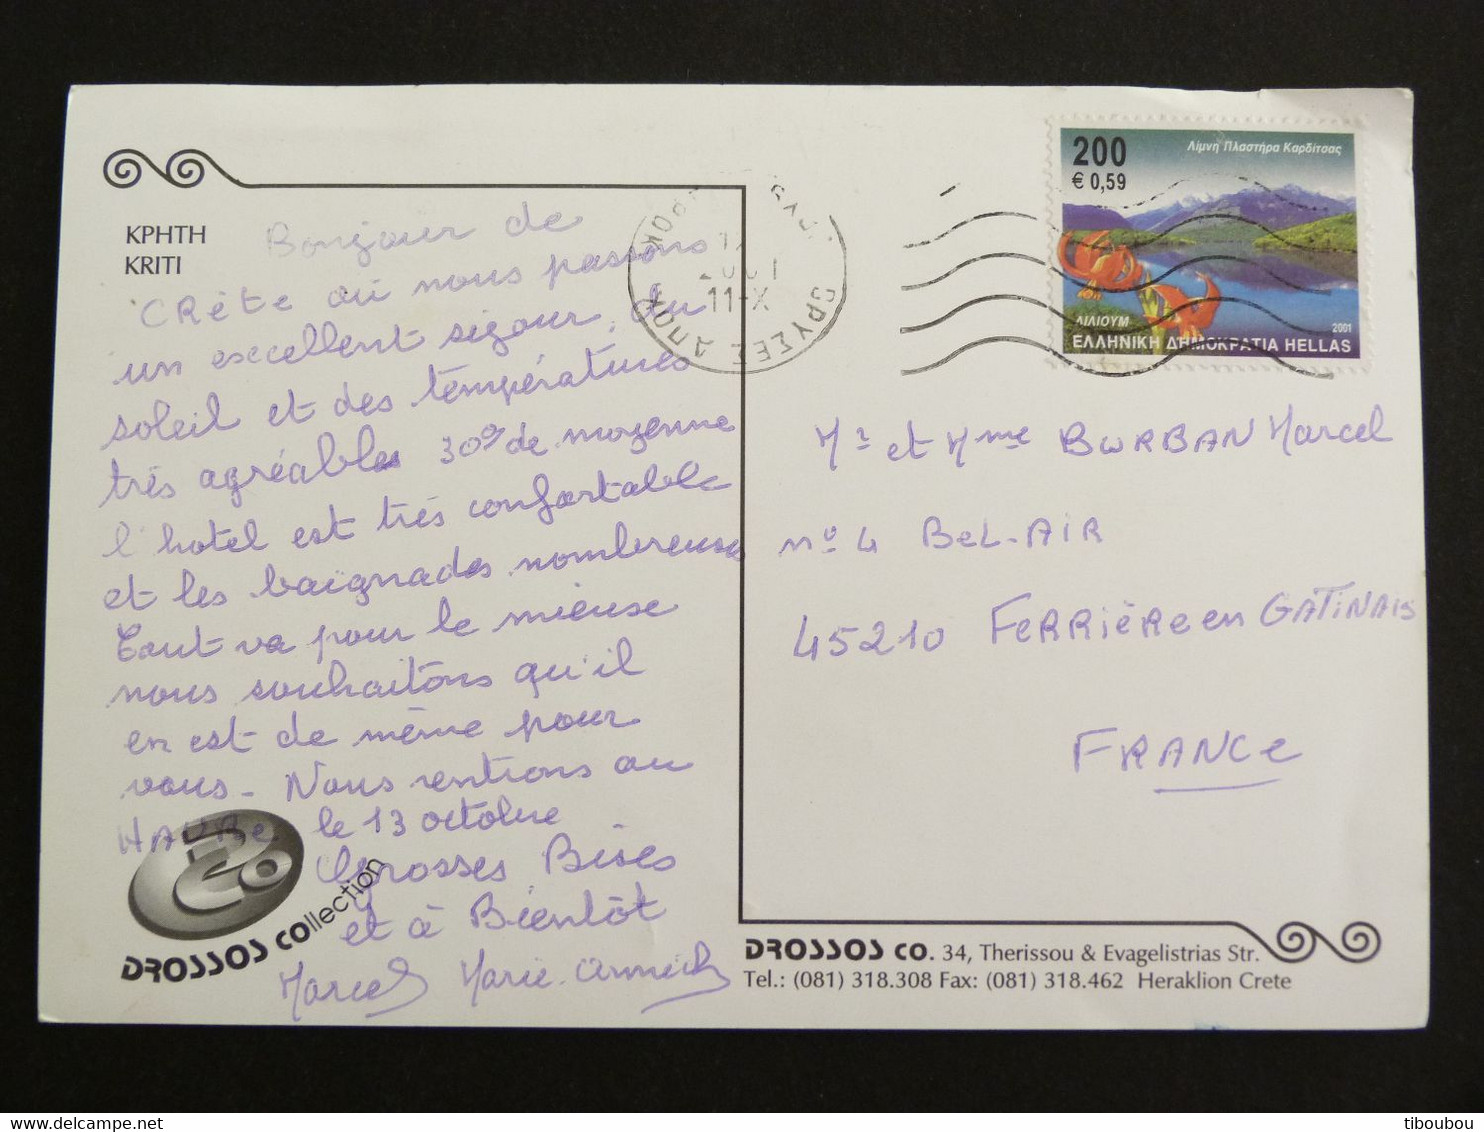 ΚΡΗΤΗ
KRITI
Bonjour de
CRète où nous passons
un excellent séjour, du
soleil et des températures
très agréables 30° de moyenne
l'hotel est très confortable
et les baignades nombreuses
Tout va pour le mieuse
nous souhaitons qu'il
en est de même pour
vous - Nous rentrons au
HAVRe le 13 octobre
Grosses Bises
et à Bientôt
Marcel Marie-
DROSSOS collection
200
€ 0,59
Λίμνη Πλαστήρα Καρδίτσας
ΛΙΛΙΟΥΜ
2001
ΕΛΛΗΝΙΚΗ ΔΗΜΟΚΡΑΤΙΑ HELLAS
2001
11-X
ΒΡΥΣΕΣ ΑΠΟΚ
Mr et Mme BURBAN Marcel
no 4 BeL-AIR
45210 FeRRièRe en GATiNAis
FRANCe
DROSSOS CO. 34, Therissou & Evagelistrias Str.
Tel.: (081) 318.308 Fax: (081) 318.462 Heraklion Crete
tiboubou